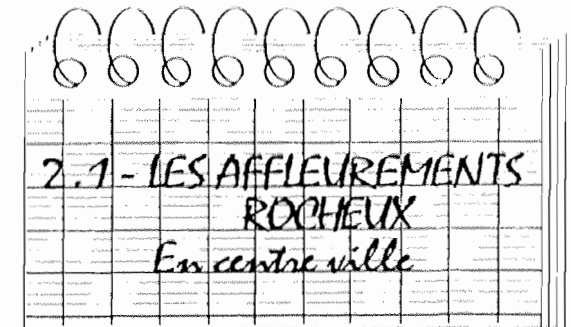 2.1 - LES AFFLEUREMENTS
ROCHEUX
En centre ville